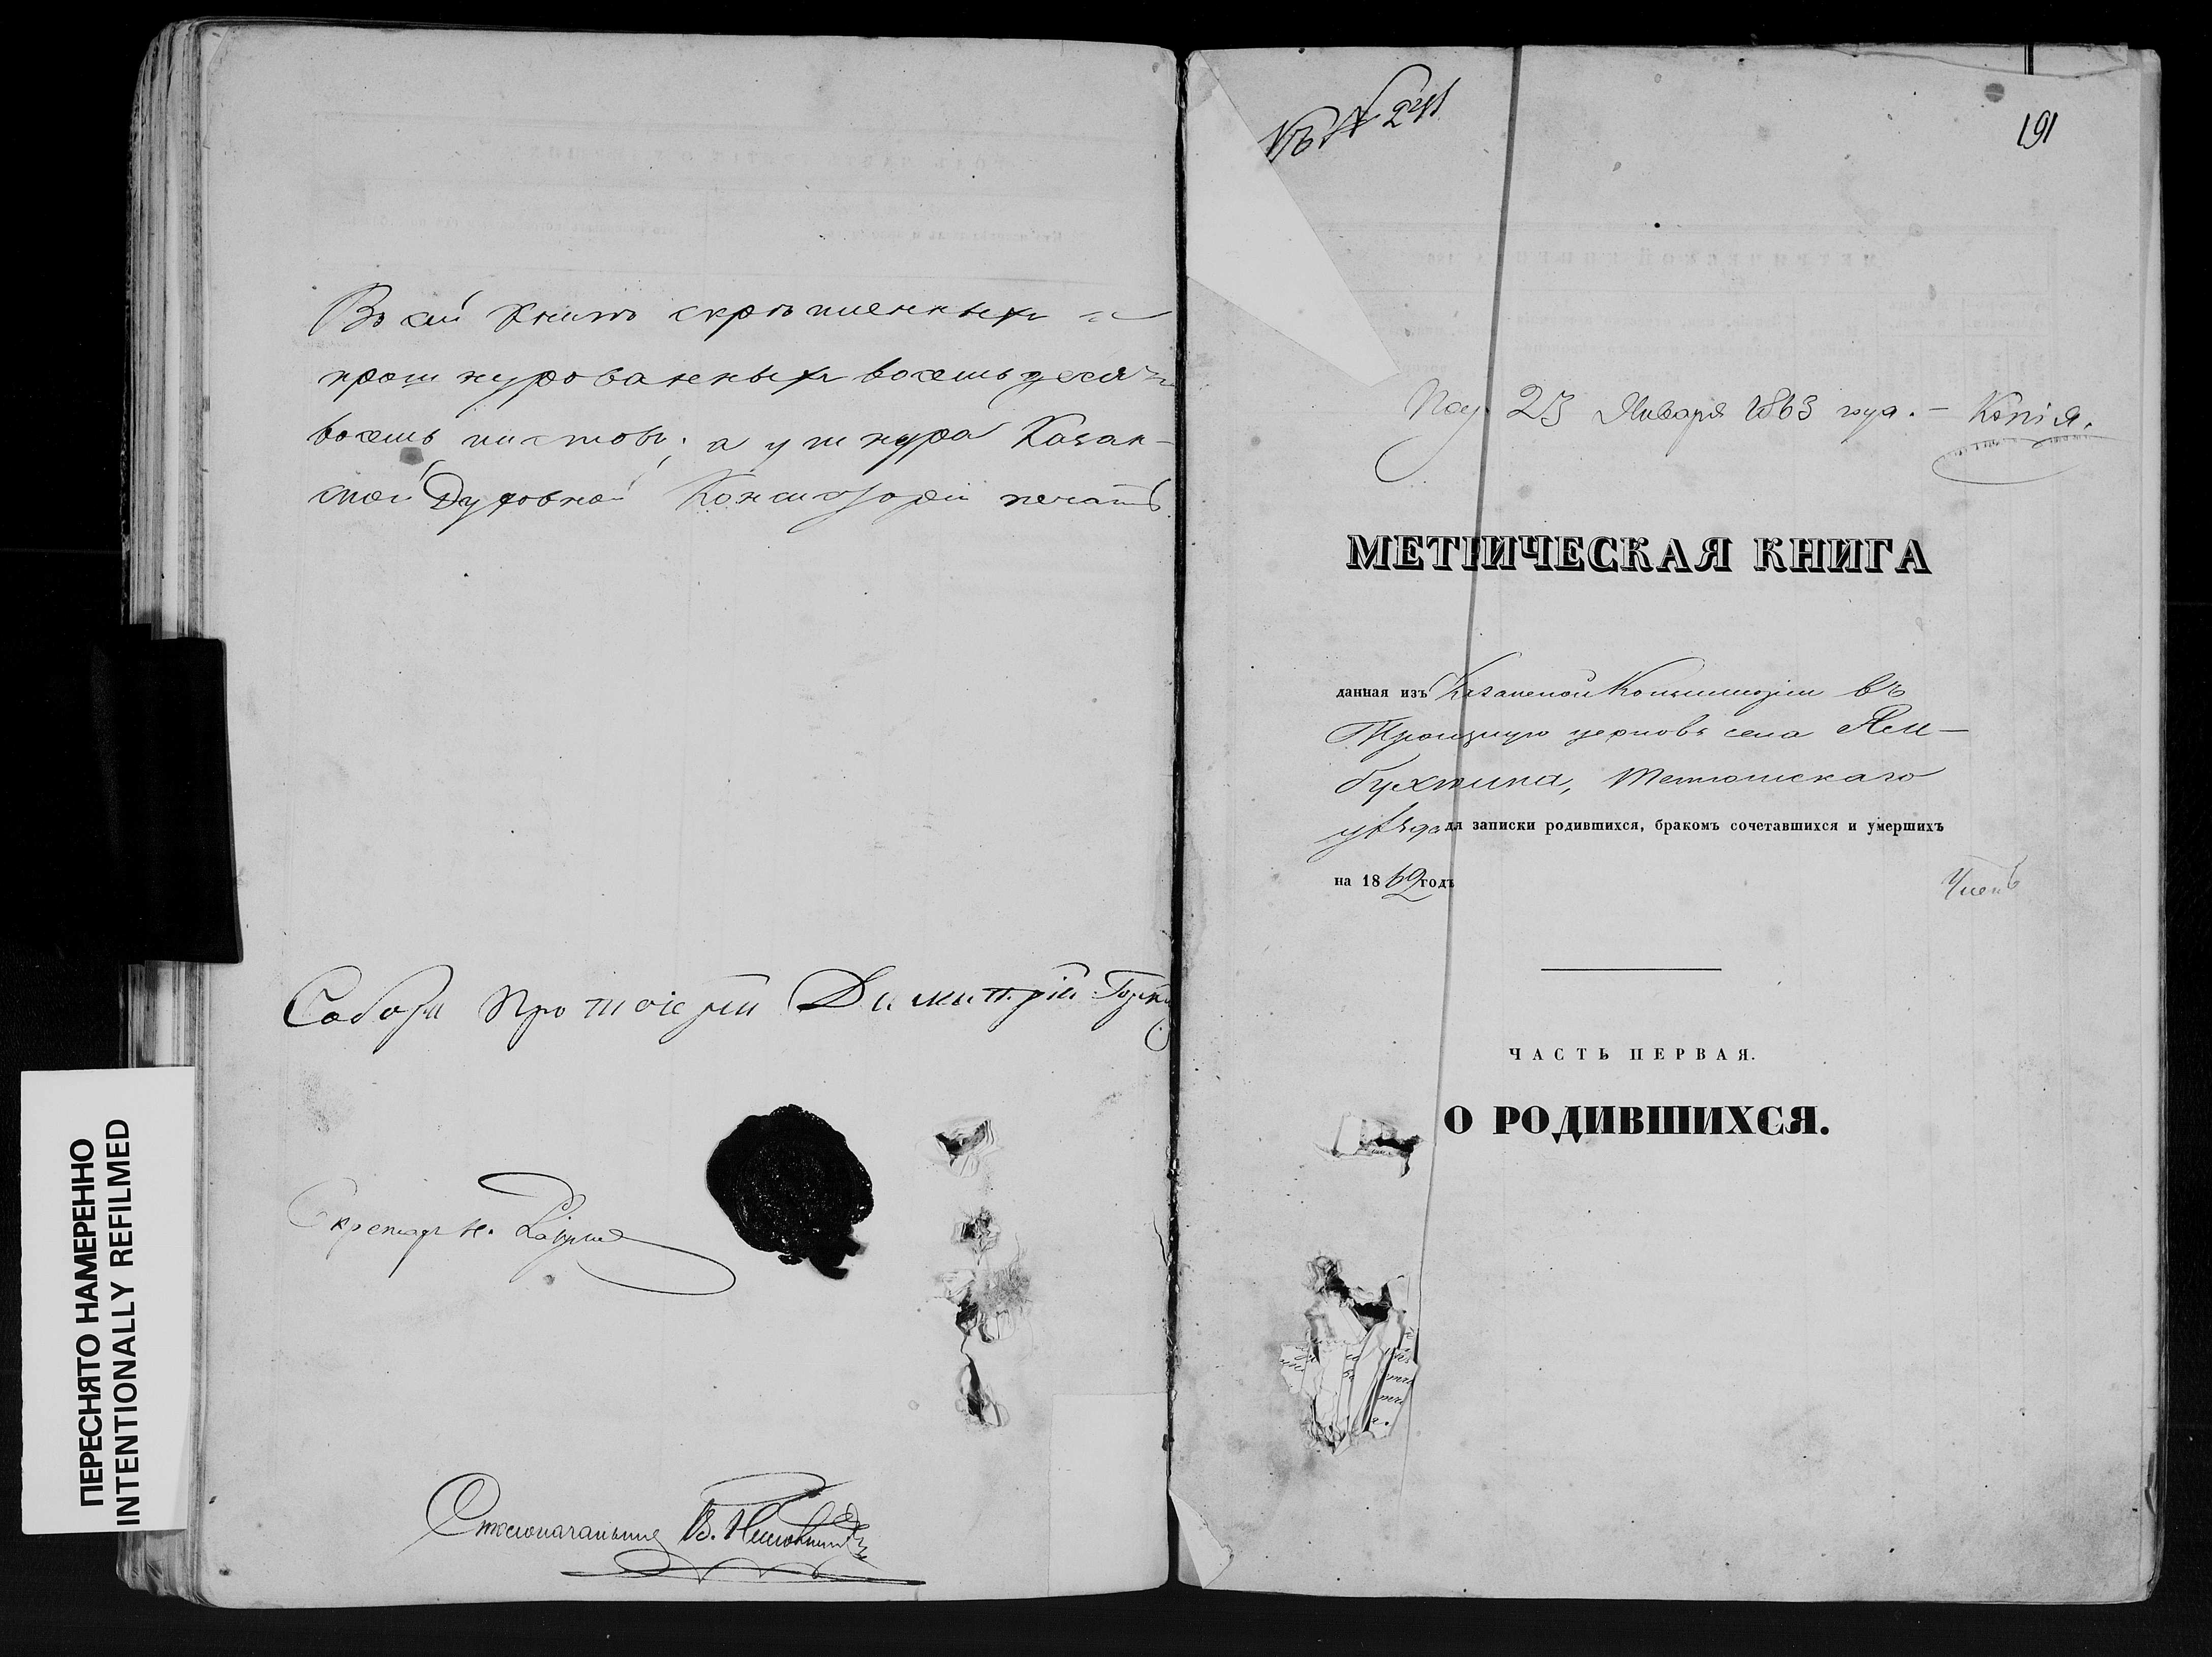 Въ сей книгѣ скрѣпленныхъ и
прошнурованныхъ восемьдесятъ
восемь листовъ; а у шнура Казан-
ской Духовной Консисторіи печать.
Собора Протоіерей Димитрій
Секретарь Н.
Столоначальникъ В.
ПЕРЕСНЯТО НАМЕРЕННО
INTENTIONALLY REFILMED
Къ № 241
191
Пол. 23 Января 1863 года. — Копія.
МЕТРИЧЕСКАЯ КНИГА
данная изъ Казанской Консисторіи въ
Троицкую церковь села Ям-
бухтина, Тетюшскаго
уѣзда для записки родившихся, бракомъ сочетавшихся и умершихъ
на 1862 годъ
Членъ
ЧАСТЬ ПЕРВАЯ.
О РОДИВШИХСЯ.